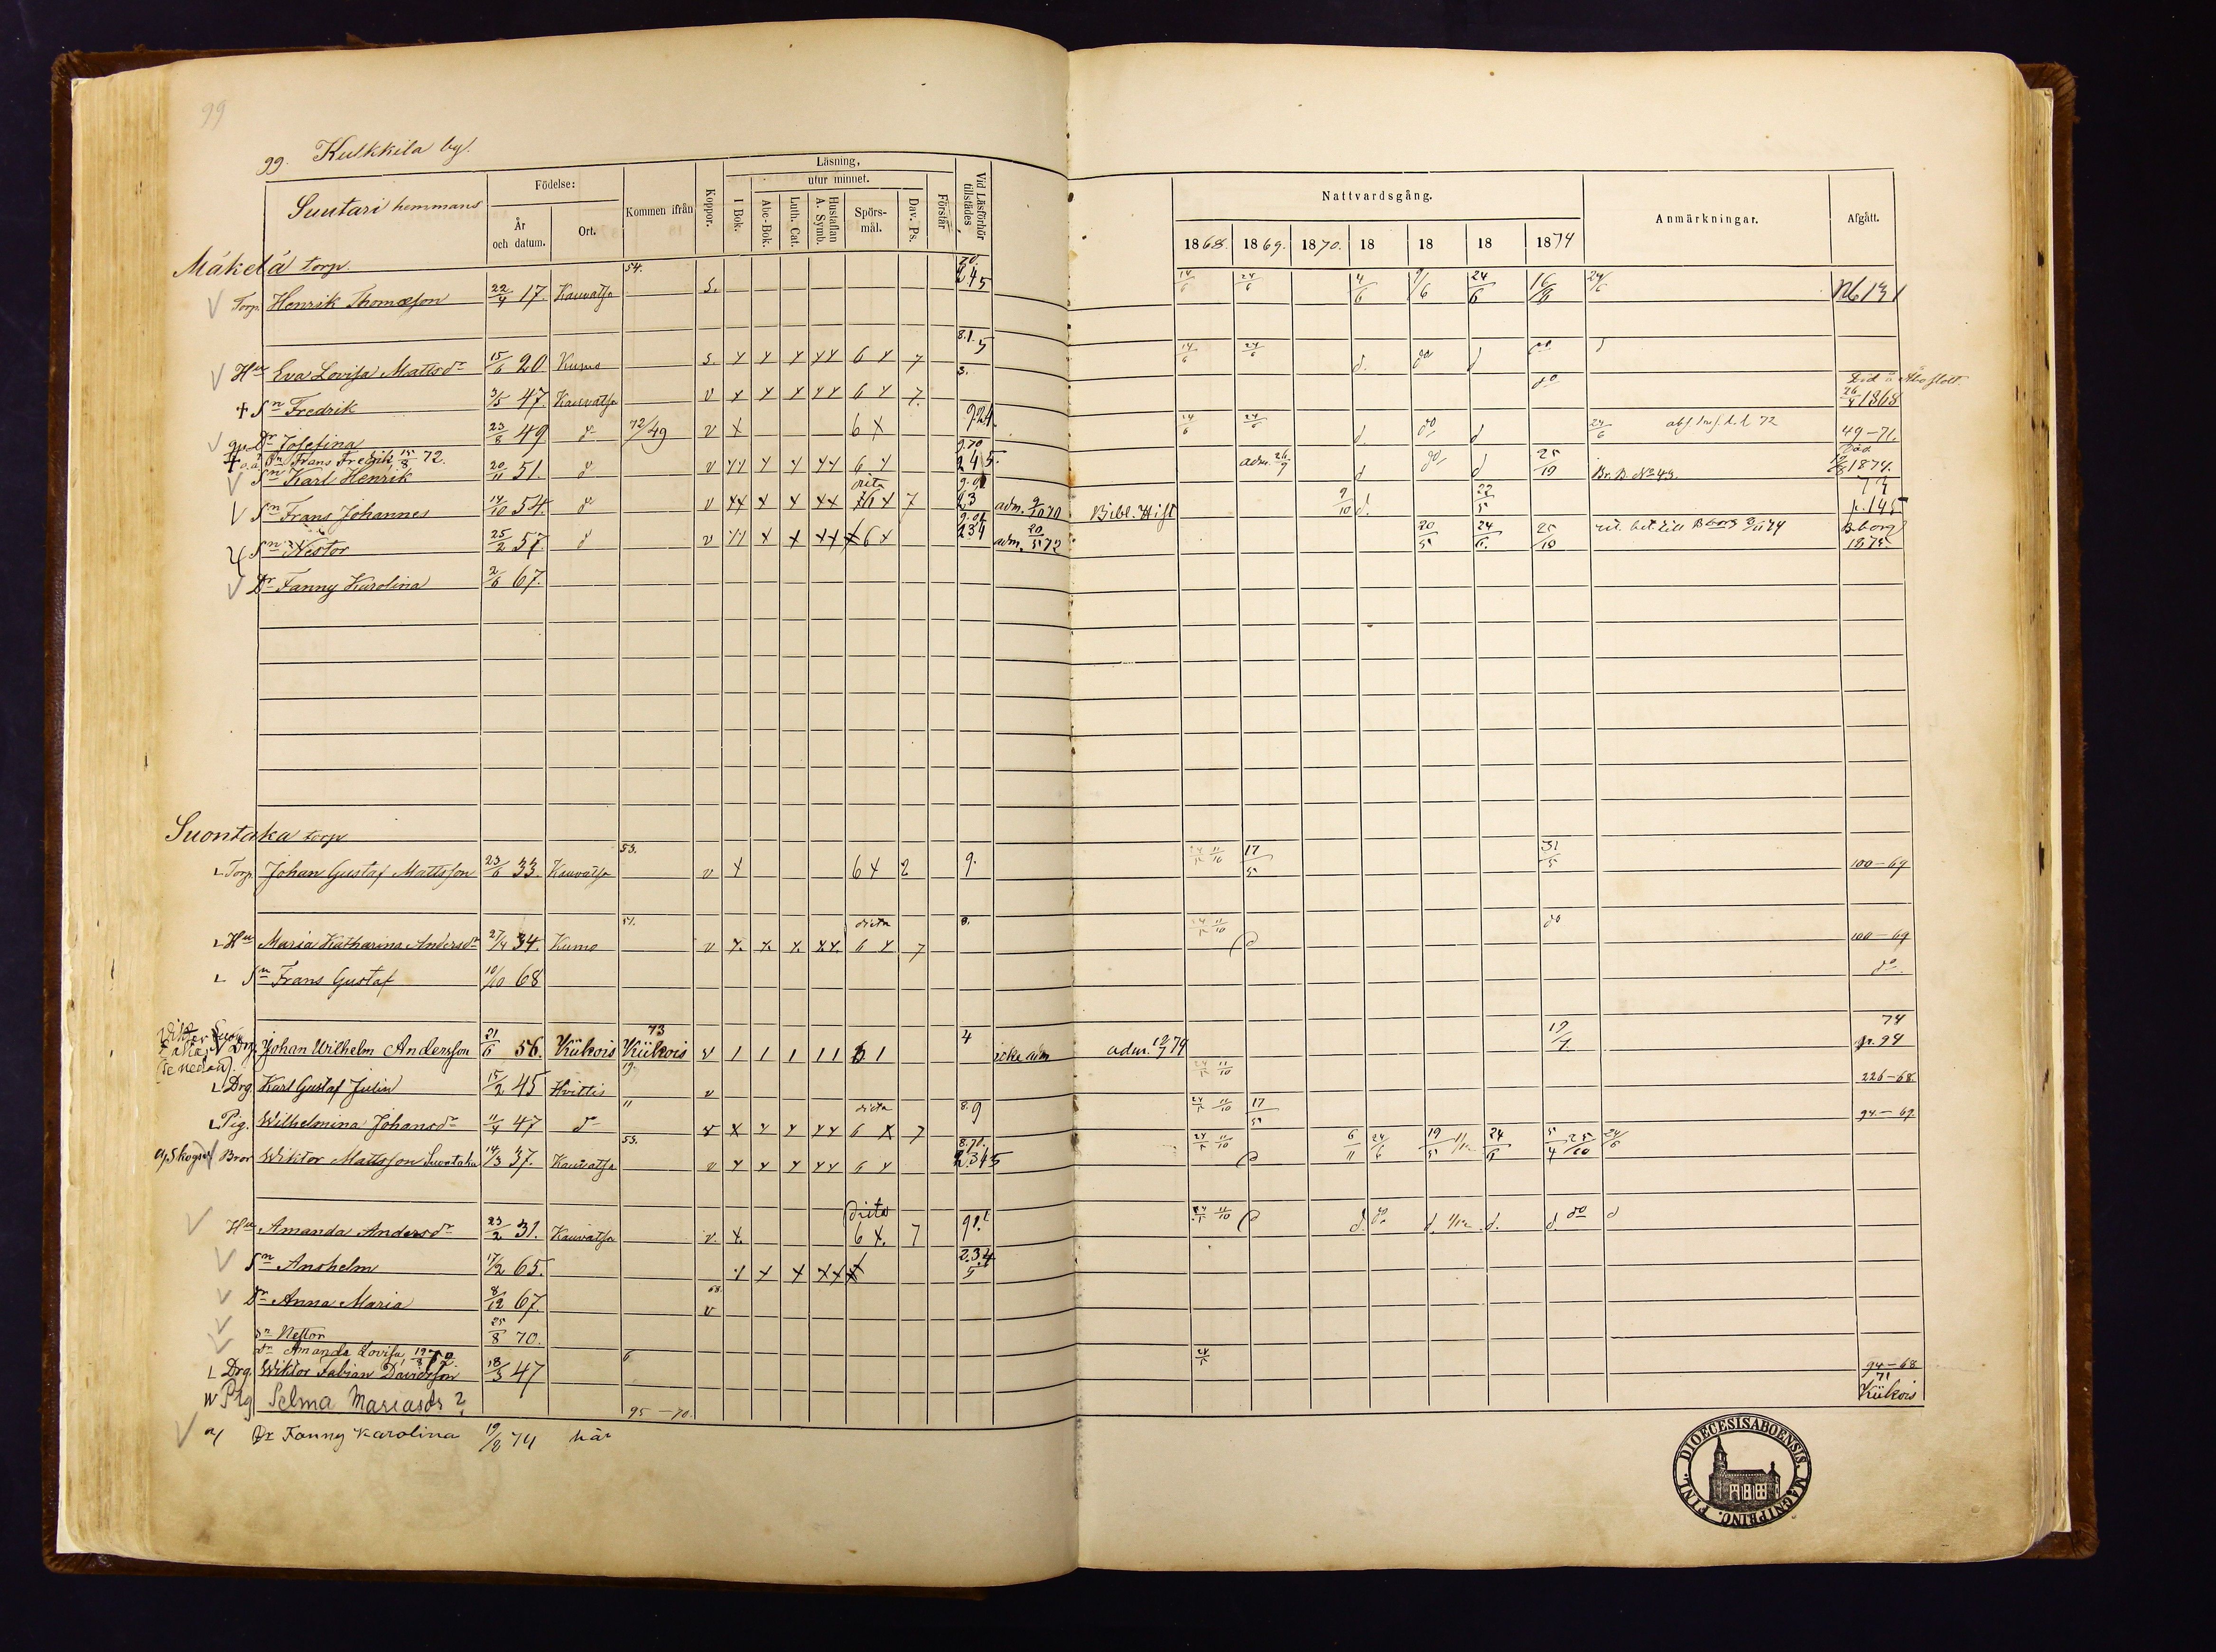 99
99. Kulkkila by.
Suutari hemmans
Födelse:
År och datum.
Ort.
Kommen ifrån
Koppor.
Läsning,
utur minnet.
I Bok.
Abc-Bok.
Luth. Cat.
Hustaflan A. Symb.
Spörs-mål.
Dav. Ps.
Förstår
Vid Läsförhör tillstädes,
Nattvardsgång.
1868. 1869. 1870. 18 18 18 1874
Anmärkningar.
Afgått.
Mäkelä torp.
Torp. Henrik Thomæsson 22/4 17. Kauvatsa 54. S. 14/6 24/6 4/6 9/6 24/6 16/8 24/6
Hu Eva Lovisa Mattsdr 15/6 20 Kumo S. x x x xx 6 x 7 14/6 24/6 d. do d do d
+ Sn Fredrik 3/5 47. Kauvatsa v x x x xx 6 x 7. Död å Åbo slott 26/4 1868
Dr Josefina 23/8 49 d 72/49 v x 6 x 14/6 24/6 d do d 24/6 49-71.
+ Sn Frans Fredrik 15/8 72. Död 1874.
Sn Karl Henrik 20/11 51. d v xx x x xx 6 x 245. adm. 26/9 d do d 25/10 Br. B. No 43. 73
Sn Frans Johannes 14/10 54 d v xx x x xx 6 x 7 23 adm. 9/10 70 Bibl. Hist 9/10 d. 22/5 p. 145
Sn Nestor 25/2 57. d v xx x x xx x 6 x 234 adm. 20/5 72 20/5 24/6. 25/10 ut. bet. till Bborg 3/11 74 Bborg 1875.
Dr Fanny Karolina 2/6 67.
Suontaka torp
Torp. Johan Gustaf Mattsson 23/6 33. Kauvatsa 53. v x 6 x 2 9. 24/5 11/10 17/5 31/5 100-69
Hu Maria Katharina Andersdr 27/4 34. Kumo 51. v x. x. x. xx. dicta 6 x 7 8. 24/5 11/10 d do 100-69
Sn Frans Gustaf 10/10 68 do.
Drg Johan Wilhelm Andersson 21/6 56. Kiikois 73 Kiikois v 1 1 1 11 6 1 4 icke adm adm. 12/7 74 19/7 74 p. 94
Drg Karl Gustaf Julin 15/2 45 Hvittis 19. v 24/5 11/10 226-68.
Pig. Wilhelmina Johansdr 11/4 47 d 11 v x x x xx dicta 6 x 7 8.9 24/5 11/10 17/5 94-69.
Bror Wiktor Mattsson Suontaka 14/3 37. Kauvatsa 53. v x x x xx 6 x 8.70. 2345 24/5 11/10 d 6/11 24/6 19/5 24/6 5/4 25/10 24/6
Hu Amanda Andersdr 23/2 31. Kauvatsa v. x. dicta 6 x. 7 24/5 11/10 d d. do d. d. d. do d
Sn Anshelm 17/2 65. x x x xx x 2.3.4 5
Dr Anna Maria 8/12 67. 68. v
Sn Nestor 25/8 70.
Dr Amanda Lovisa 72.
Drg. Wiktor Fabian Davidsson 18/3 47 6 24/5 94-68
Pig Selma Mariasdr ? 95-70. 71 Kiikois
Dr Fanny Karolina 19/8 74 här
FINL. DIOECESIS ABOENSIS. MAGNI PRINC.